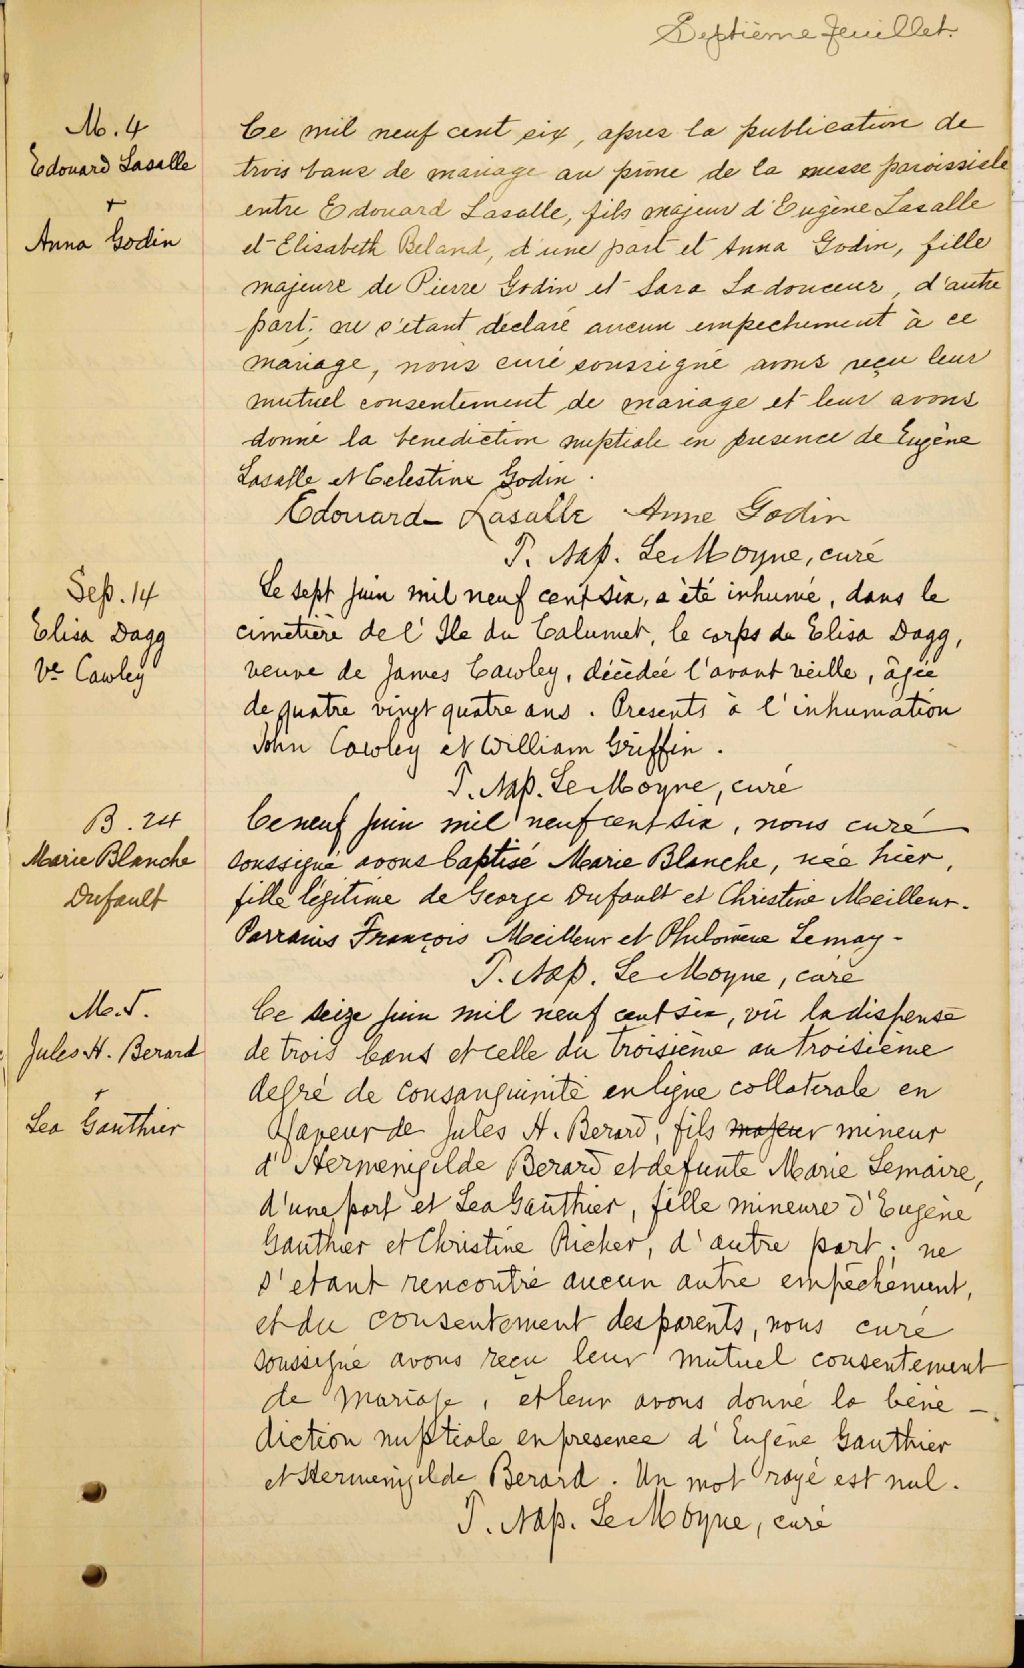 Septième feuillet.
M. 4
Edouard Lasalle
+
Anna Godin
Ce mil neuf cent six, apres la publication de
trois bans de mariage au prône de la messe paroissiale
entre Edouard Lasalle, fils majeur d'Eugène Lasalle
et Elisabeth Beland, d'une part et Anna Godin, fille
majeure de Pierre Godin et Sara Ladouceur, d'autre
part; ne s'etant déclaré aucun empechement à ce
mariage, nous curé soussigné avons reçu leur
mutuel consentement de mariage et leur avons
donné la benediction nuptiale en presence de Eugène
Lasalle et Celestine Godin.
Edouard Lasalle Anne Godin
T. Nap. LeMoyne, curé
Sep. 14
Elisa Dagg
Ve Cawley
Le sept juin mil neuf cent six, a été inhumé, dans le
cimetière de l'Ile du Calumet, le corps de Elisa Dagg,
veuve de James Cawley, décédée l'avant veille, âgée
de quatre vingt quatre ans. Presents à l'inhumation
John Cawley et William Griffin.
T. Nap. LeMoyne, curé
B. 24
Marie Blanche
Dufault
Ce neuf juin mil neuf cent six, nous curé
soussigné avons baptisé Marie Blanche, née hier,
fille légitime de George Dufault et Christine Meilleur.
Parrains François Meilleur et Philomène Lemay-
T. Nap. LeMoyne, curé
M. 5.
Jules H. Berard
+
Lea Gauthier
Ce seize juin mil neuf cent six, vû la dispense
de trois bans et celle du troisième au troisieme
degré de consanguinité en ligne collaterale en
faveur de Jules H. Berard, fils majeur mineur
d'Hermenigilde Berard et defunte Marie Lemaire,
d'une part et Lea Gauthier, fille mineure d'Eugène
Gauthier et Christine Richer, d'autre part; ne
s'etant rencontré aucun autre empêchément,
et du consentement des parents, nous curé
soussigné avons reçu leur mutuel consentement
de mariage, et leur avons donné la béné-
diction nuptiale en presence d'Eugène Gauthier
et Hermenigilde Berard. Un mot rayé est nul.
T. Nap. LeMoyne, curé